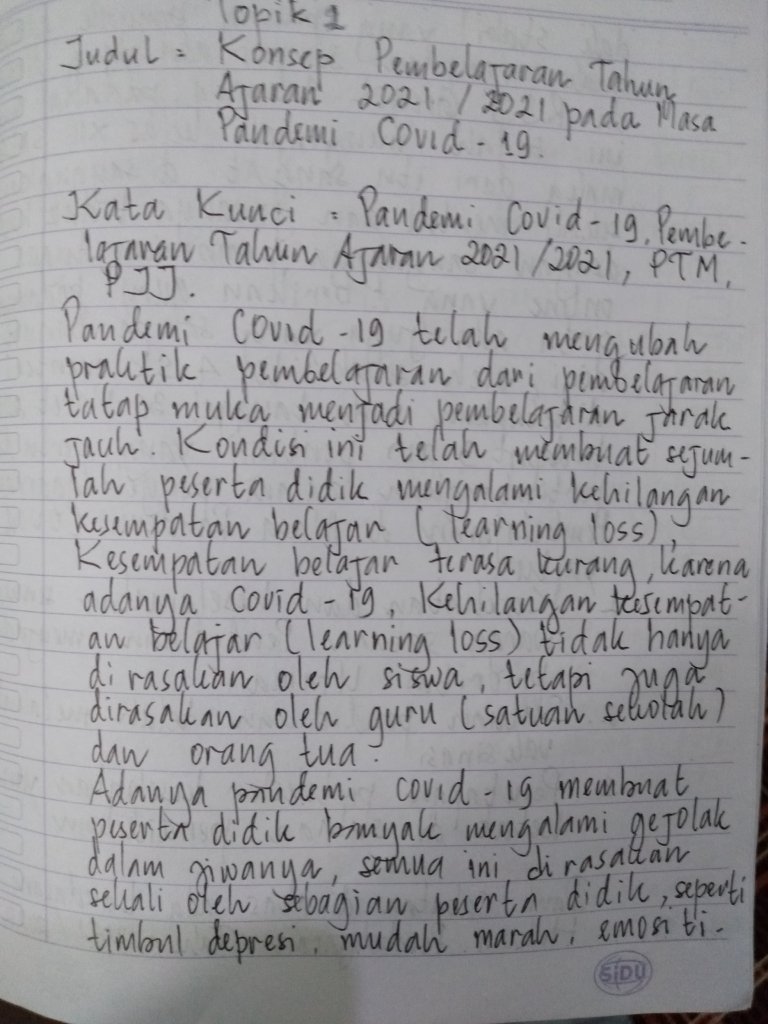 Topik 1
Judul = Konsep Pembelajaran Tahun
Ajaran 2021/2021 pada Masa
Pandemi Covid-19.
Kata Kunci = Pandemi Covid-19, Pembe-
lajaran Tahun Ajaran 2021/2021, PTM,
PJJ.
Pandemi Covid-19 telah mengubah
praktik pembelajaran dari pembelajaran
tatap muka menjadi pembelajaran jarak
jauh. Kondisi ini telah membuat sejum-
lah peserta didik mengalami kehilangan
kesempatan belajar (learning loss),
Kesempatan belajar terasa kurang, karena
adanya Covid-19, Kehilangan kesempat-
an belajar (learning loss) tidak hanya
di rasakan oleh siswa, tetapi juga
dirasakan oleh guru (satuan sekolah)
dan orang tua.
Adanya pandemi covid-19 membuat
peserta didik banyak mengalami gejolak
dalam jiwanya, semua ini di rasakan
sekali oleh sebagian peserta didik, seperti
timbul depresi, mudah marah, emosi ti-
SIDU